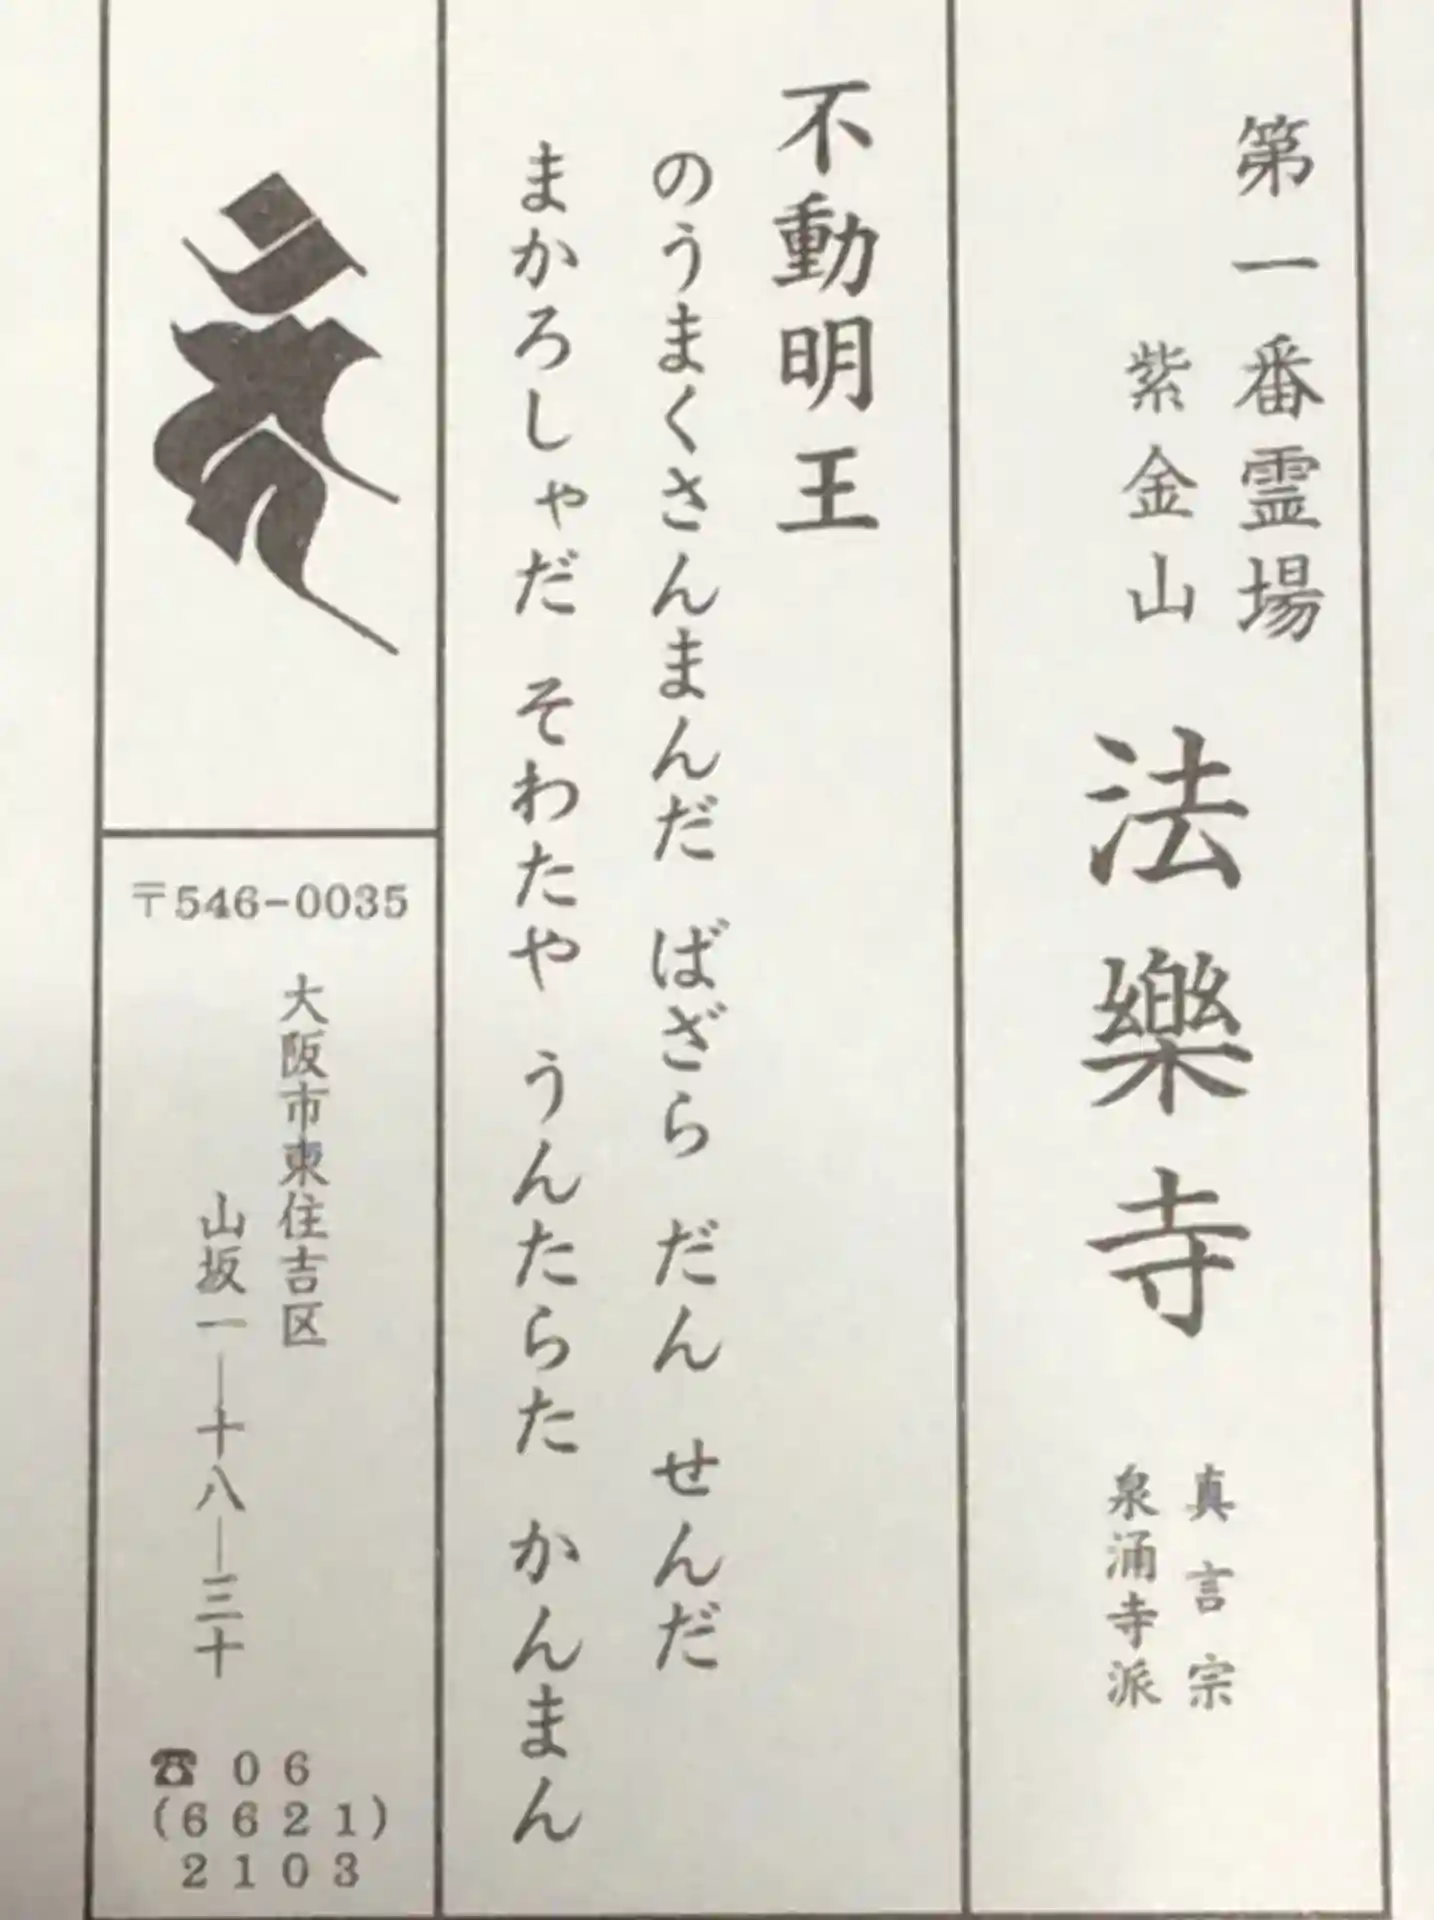 第一番霊場
紫金山
法樂寺
真言宗
泉涌寺派
不動明王
のうまくさんまんだ ばざら だん せんだ
まかろしゃだ そわたや うんたらた かんまん
〒546-0035
大阪市東住吉区
山坂一―十八―三十
☎ 06
(6621)
2103